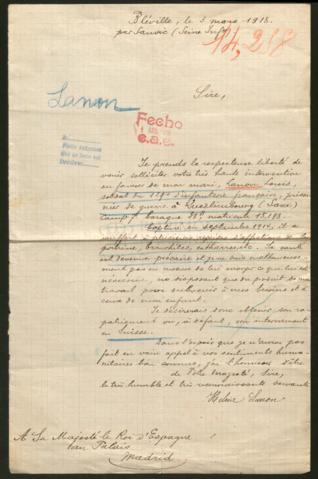 Bléville, le 5 mars 1918.
par Sanvic (Seine Infre)
Lanon
Fecho
e.a.e.
Sire,
Je prends la respectueuse liberté de
venir solliciter votre très haute intervention
en faveur de mon mari, Lanon Louis,
soldat du 119e d'infanterie française, prison-
nier de guerre à
camp baraque matricule
Capturé en septembre 1914, il a
souffert à plusieurs reprises d'affections de
poitrine, bronchites, entérite. Sa santé
est devenue précaire et je ne suis malheureuse-
ment pas en mesure de lui envoyer ce qui lui est
nécessaire, ne disposant que du produit de mon
travail pour subvenir à mes besoins et à
ceux de mon enfant.
Je désirerais donc obtenir son ra-
patriement ou, à défaut, son internement
en Suisse.
Sans l'espoir que je n'aurai pas
fait en vain appel à vos sentiments huma-
nitaires bien connus, j'ai l'honneur d'être
de Votre Majesté, Sire,
la très humble et très reconnaissante servante
Lanon
A Sa Majesté le Roi d'Espagne
son Palais
Madrid